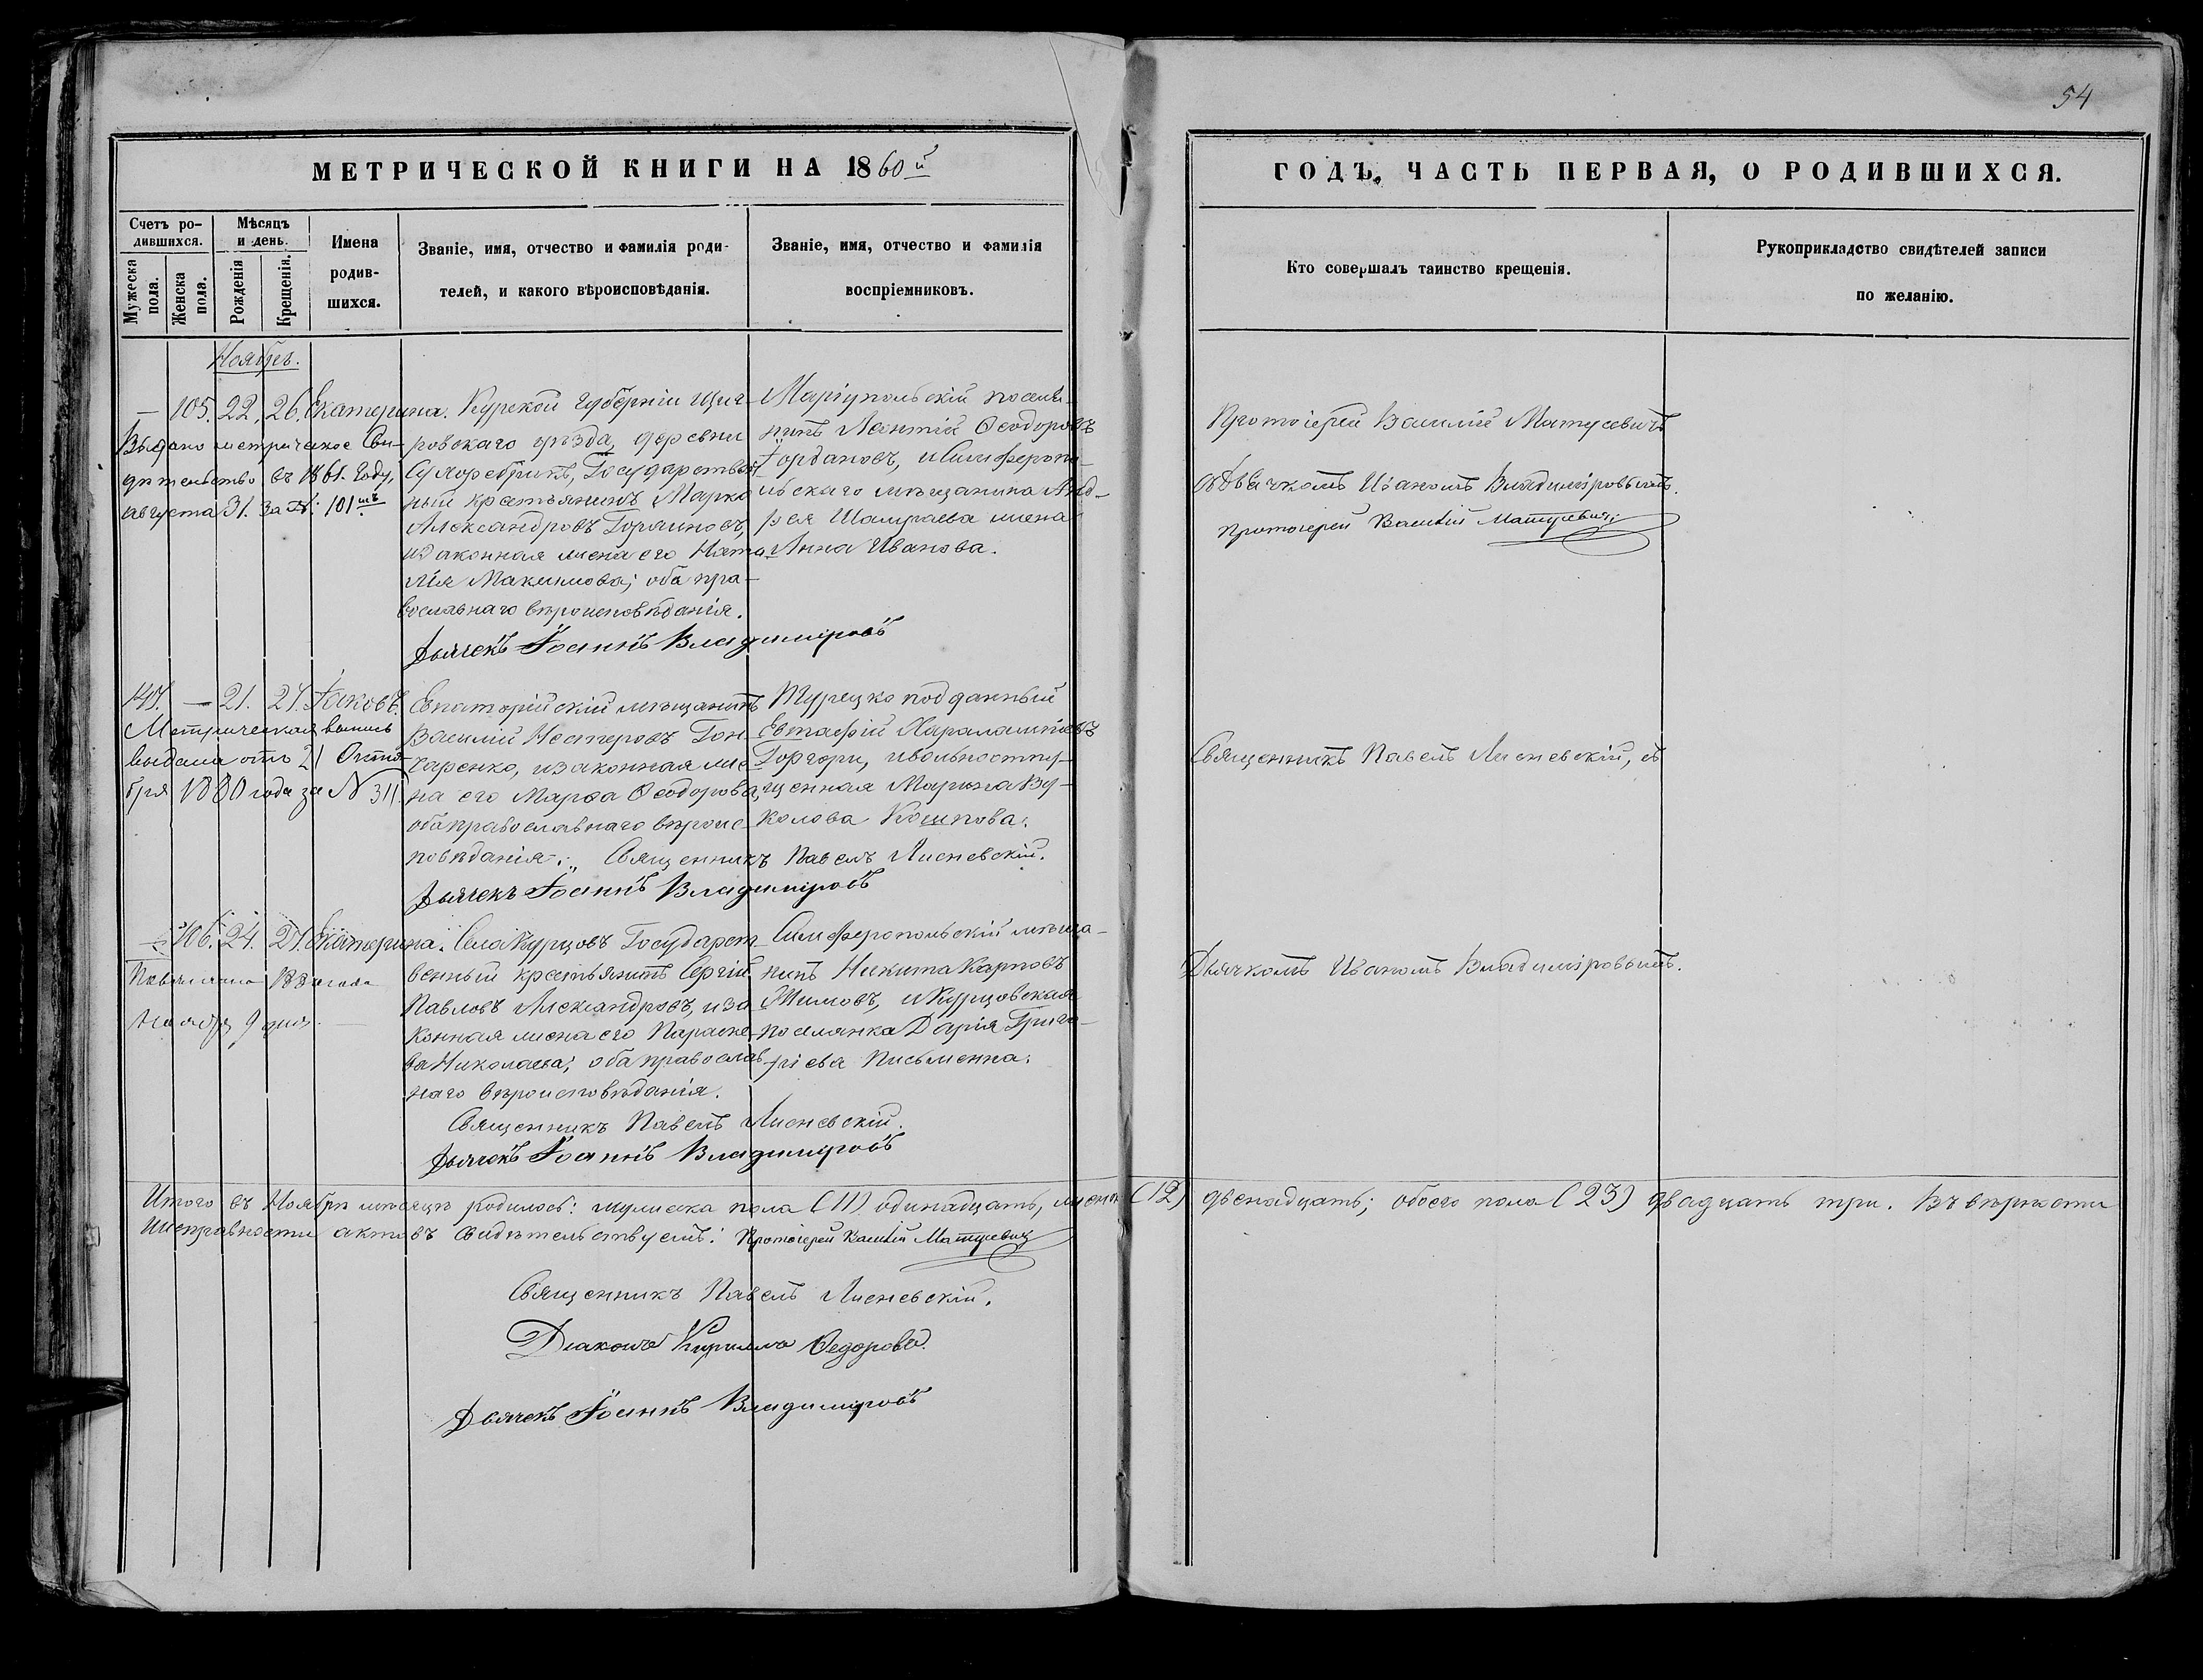 54
МЕТРИЧЕСКОЙ КНИГИ НА 1860й
ГОДЪ, ЧАСТЬ ПЕРВАЯ, О РОДИВШИХСЯ.
Счетъ ро-
дившихся.
Мужеска пола.
Женска пола.
Мѣсяцъ
и день.
Рожденія
Крещенія.
Имена
родив-
шихся.
Званіе, имя, отчество и фамилія роди-
телей, и какого вѣроисповѣданія.
Званіе, имя, отчество и фамилія
воспріемниковъ.
Кто совершалъ таинство крещенія.
Рукоприкладство свидѣтелей записи
по желанію.
Ноябрь.
— 105. 22. 26. Екатерина.
Выдано метрическое Сви-
дѣтельство въ 1861. Году,
августа 31. за №: 101мъ
Курской губерніи Щиг-
ровскаго уѣзда, деревни
Государствен-
ный крестьянинъ Марко
Александровъ
и законная жена его Ната-
лія Максимова; оба пра-
вославнаго вѣроисповѣданія.
Дьячекъ Іоаннъ Владиміровъ
Маріупольскій поселя-
нинъ Леонтій Ѳеодоровъ
Іордановъ, и Симферопо-
льскаго мѣщанина Анд-
рея жена
Анна Иванова.
Протоіерей Василій Матусевичъ
съ дьячкомъ Иваномъ Владиміровымъ.
Протоіерей Василій Матусевичъ
147. — 21. 27. Іаковъ.
Метрическая выпись
выдана отъ 21 Октя-
бря 1880 года за № 311.
Евпаторійскій мѣщанинъ
Василій Нестеровъ Гон-
чаренко, и законная же-
на его Марѳа Ѳеодорова,
оба православнаго вѣроис-
повѣданія. Священникъ Павелъ Лисневскій.
Дьячекъ Іоаннъ Владиміровъ
Турецко подданный
Евтафій Харалампіевъ
Горгори, и вольноотпу-
щенная Марина Ву-
колова
Священникъ Павелъ Лисневскій, съ
— 106. 24. 27. Екатерина.
1880 года
ноября 9 дня.
Села Курцовъ Государст-
венный крестьянинъ Сергій
Павловъ Александровъ, и за-
конная жена его Параске-
ва Николаева; оба православ-
наго вѣроисповѣданія.
Священникъ Павелъ Лисневскій.
Дьячекъ Іоаннъ Владиміровъ
Симферопольскій мѣща-
нинъ Никита Карповъ
и Курцовская
поселянка Дарія Григо-
рiева Письменна.
Дьячкомъ Иваномъ Владиміровымъ.
Итого въ Ноябрѣ мѣсяцѣ родилось: мужеска пола (11) одинадцать, женска (12) двенадцать; обоего пола (23) двадцать три. Въ вѣрности
и исправности актовъ свидѣтельствуемъ: Протоіерей Василій Матусевичъ
Священникъ Павелъ Лисневскій.
Діаконъ Кириллъ Ѳедоровъ.
Дьячекъ Іоаннъ Владиміровъ